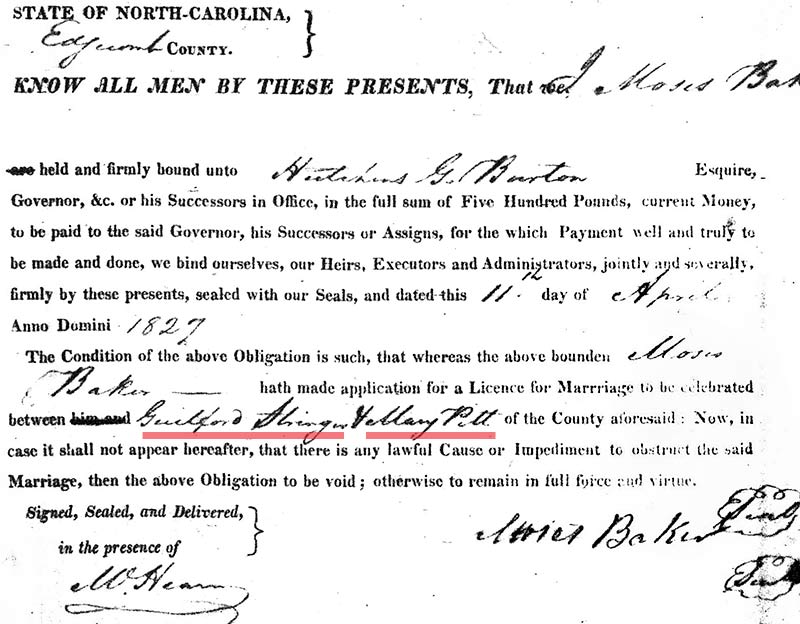 STATE OF NORTH-CAROLINA,
Edgcomb COUNTY.
KNOW ALL MEN BY THESE PRESENTS, That we I Moses Bak
are held and firmly bound unto Hutchins G. Burton Esquire,
Governor, &c. or his Successors in Office, in the full sum of Five Hundred Pounds, current Money,
to be paid to the said Governor, his Successors or Assigns, for the which Payment well and truly to
be made and done, we bind ourselves, our Heirs, Executors and Administrators, jointly and severally,
firmly by these presents, sealed with our Seals, and dated this 11th day of April
Anno Domini 1827
The Condition of the above Obligation is such, that whereas the above bounden Moses
Baker — hath made application for a Licence for Marrriage to be celebrated
between him and Guilford Stringer & Mary Pitt of the County aforesaid: Now, in
case it shall not appear hereafter, that there is any lawful Cause or Impediment to obstruct the said
Marriage, then the above Obligation to be void; otherwise to remain in full force and virtue.
Signed, Sealed, and Delivered,
in the presence of
Moses Baker Seal
Seal
Mc Hearn